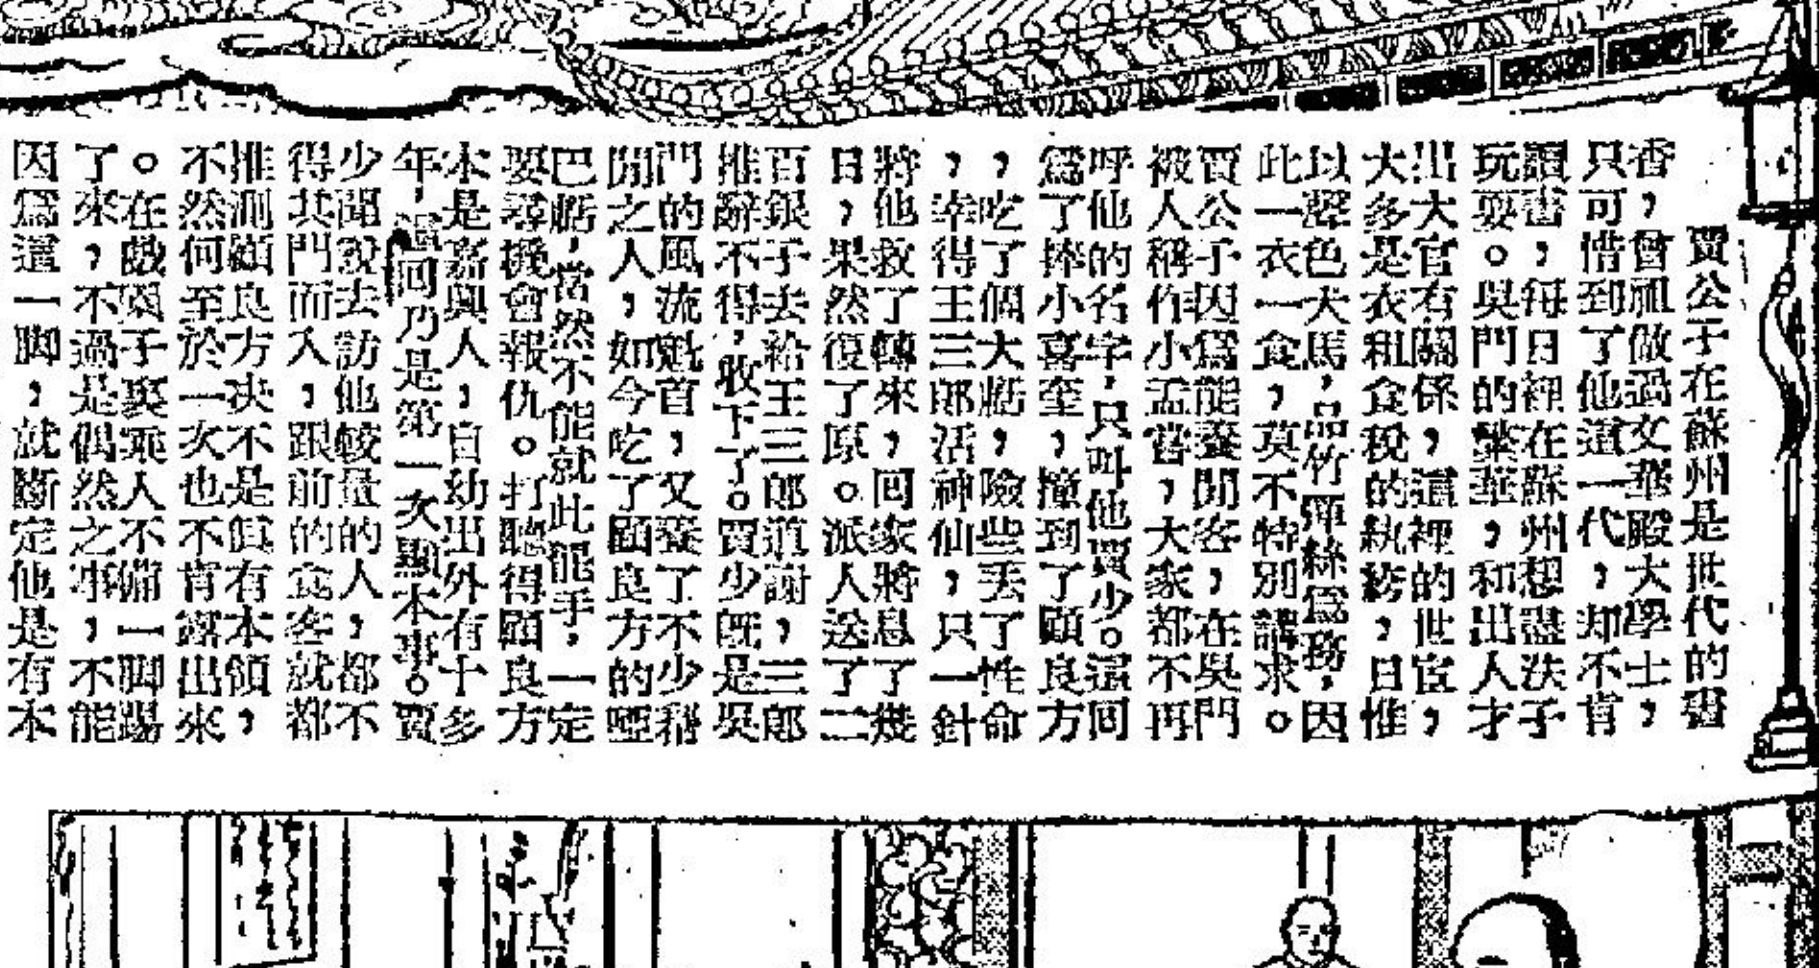 賈公子在蘇州是世代的書
香，曾祖做過文華殿大學士，
只可惜到了他這一代，却不肯
讀書，每日裡在蘇州想盡法子
玩耍。吳門的繁華，和出人才
出大官有關係，這裡的世宦，
大多是衣租食稅的紈絝，日惟
以聲色犬馬，品竹彈絲爲務，因
此一衣一食，莫不特別講求。
賈公子因爲能養閒客，在吳門
被人稱作小孟嘗，大家都不再
呼他的名字，只叫他賈少。這回
爲了捧小喜奎，撞到了顧良方
，吃了個大虧，險些丟了性命
，幸得王三郎活神仙，只一針
將他救了轉來，回家將息了幾
日，果然復了原。派人送了二
百銀子去給王三郎道謝，三郎
推辭不得，收下了。賈少既是吳
門的風流魁首，又養了不少稱
閒之人，如今吃了顧良方的啞
巴虧，當然不能就此罷手，一定
要尋機會報仇。打聽得顧良方
本是嘉興人，自幼出外有十多
年，這回乃是第一次顯本事。賈
少聞說去訪他較量的人，都不
得其門而入，跟前的食客就都
推測顧良方决不是眞有本領，
不然何至於一次也不肯露出來
。在戲園子裏乘人不備一脚踢
了來，不過是偶然之事，不能
因爲這一脚，就斷定他是有本